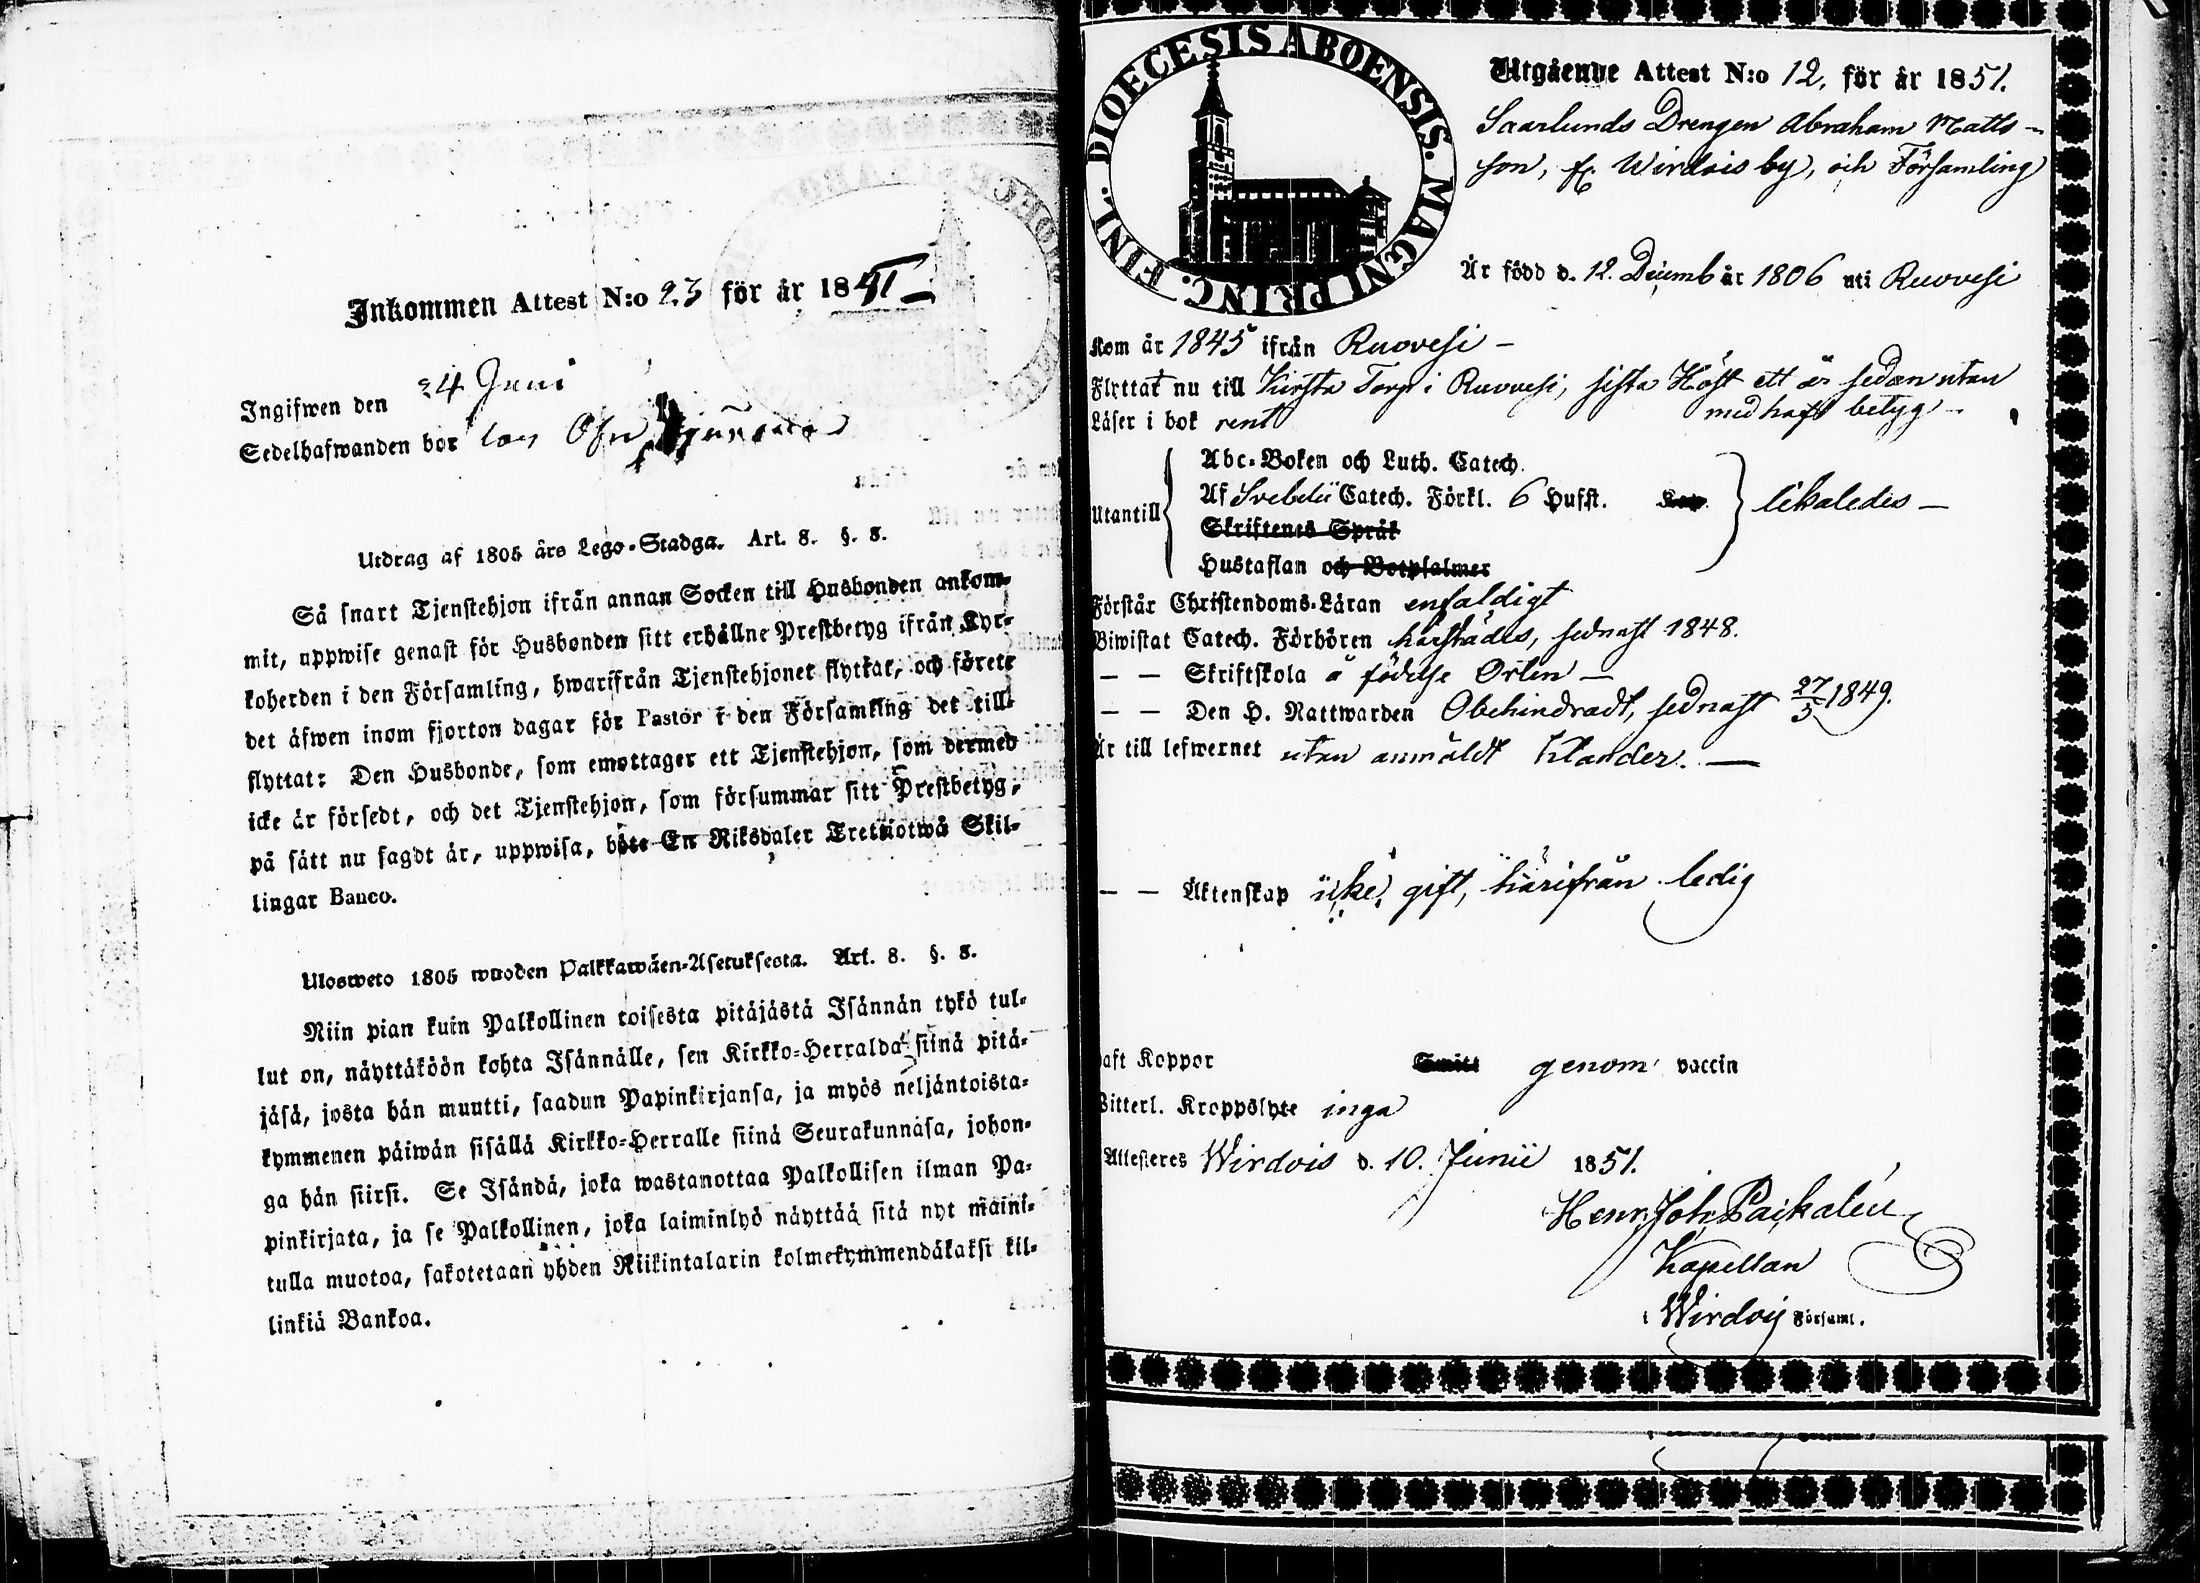 Inkommen Attest N:o 23 för år 1851
Ingifwen den 24 Juni
Sedelhafwanden bor
Utdrag af 1805 års Lego-Stadga. Art. 8. §. 8.
Så snart Tjenstehjon ifrån annan Socken till Husbonden ankom-
mit, uppwise genast för Husbonden sitt erhållne Prestbetyg ifrån Kyr-
koherden i den Församling, hwarifrån Tjenstehjonet flyttat, och förete
det äfwen inom fjorton dagar för Pastor i den Församling det till-
flyttat: Den Husbonde, som emottager ett Tjenstehjon, som dermed
icke är försedt, och det Tjenstehjon, som försummar sitt Prestbetyg,
på sätt nu sagdt är, uppwisa, böte En Riksdaler Trettiotwå Skil-
lingar Banco.
Ulosweto 1805 wuoden Palkkawäen-Asetuksesta. Art. 8. §. 8.
Niin pian kuin Palkollinen toisesta pitäjästä Isännän tykö tul-
lut on, näyttäköön kohta Isännälle, sen Kirkko-Herralda siinä pitä-
jäsä, josta hän muutti, saadun Papinkirjansa, ja myös neljäntoista-
kymmenen päiwän sisällä Kirkko-Herralle siinä Seurakunnasa, johon-
ga hän siirsi. Se Isändä, joka wastanottaa Palkollisen ilman Pa-
pinkirjata, ja se Palkollinen, joka laiminlyö näyttää sitä nyt maini-
tulla muotoa, sakotetaan yhden Riikintalarin kolmekymmendäkaksi kil-
linkiä Bankoa.
DIOECESIS ABOENSIS. MAGNI PRINC. FINL.
Utgående Attest N:o 12. för år 1851.
Saarlunds Drengen Abraham Matts-
son, fr. Wirdois by, och Församling
Är född d. 12. Decemb år 1806 uti Ruovesi
Kom år 1845 ifrån Ruovesi -
Flyttat nu till Torp i Ruovesi, sista Höst ett år sedan utan
medhaft betyg -
Läser i bok rent
Utantill
Abc-Boken och Luth. Catech.
Af Svebelii Catech. Förkl. 6 Hufst. likaledes -
Skriftenes Språk
Hustaflan och Botpsalmer
Förstår Christendoms-Läran enfaldigt
Biwistat Catech. Förhören härstädes, sednast 1848.
- - Skriftskola å födelse Orten -
- - Den H. Nattwarden Obehindradt, sednast 27/5 1849.
Är till lefwernet utan anmäldt klander. -
- - Äktenskap icke gift, härifrån ledig
Haft Koppor genom vaccin
Witterl. Kroppslyte inga
Attesteres Wirdois d. 10. Junii 1851.
Henr. Joh. Paikalén
Kapellan
i Wirdois Församl.